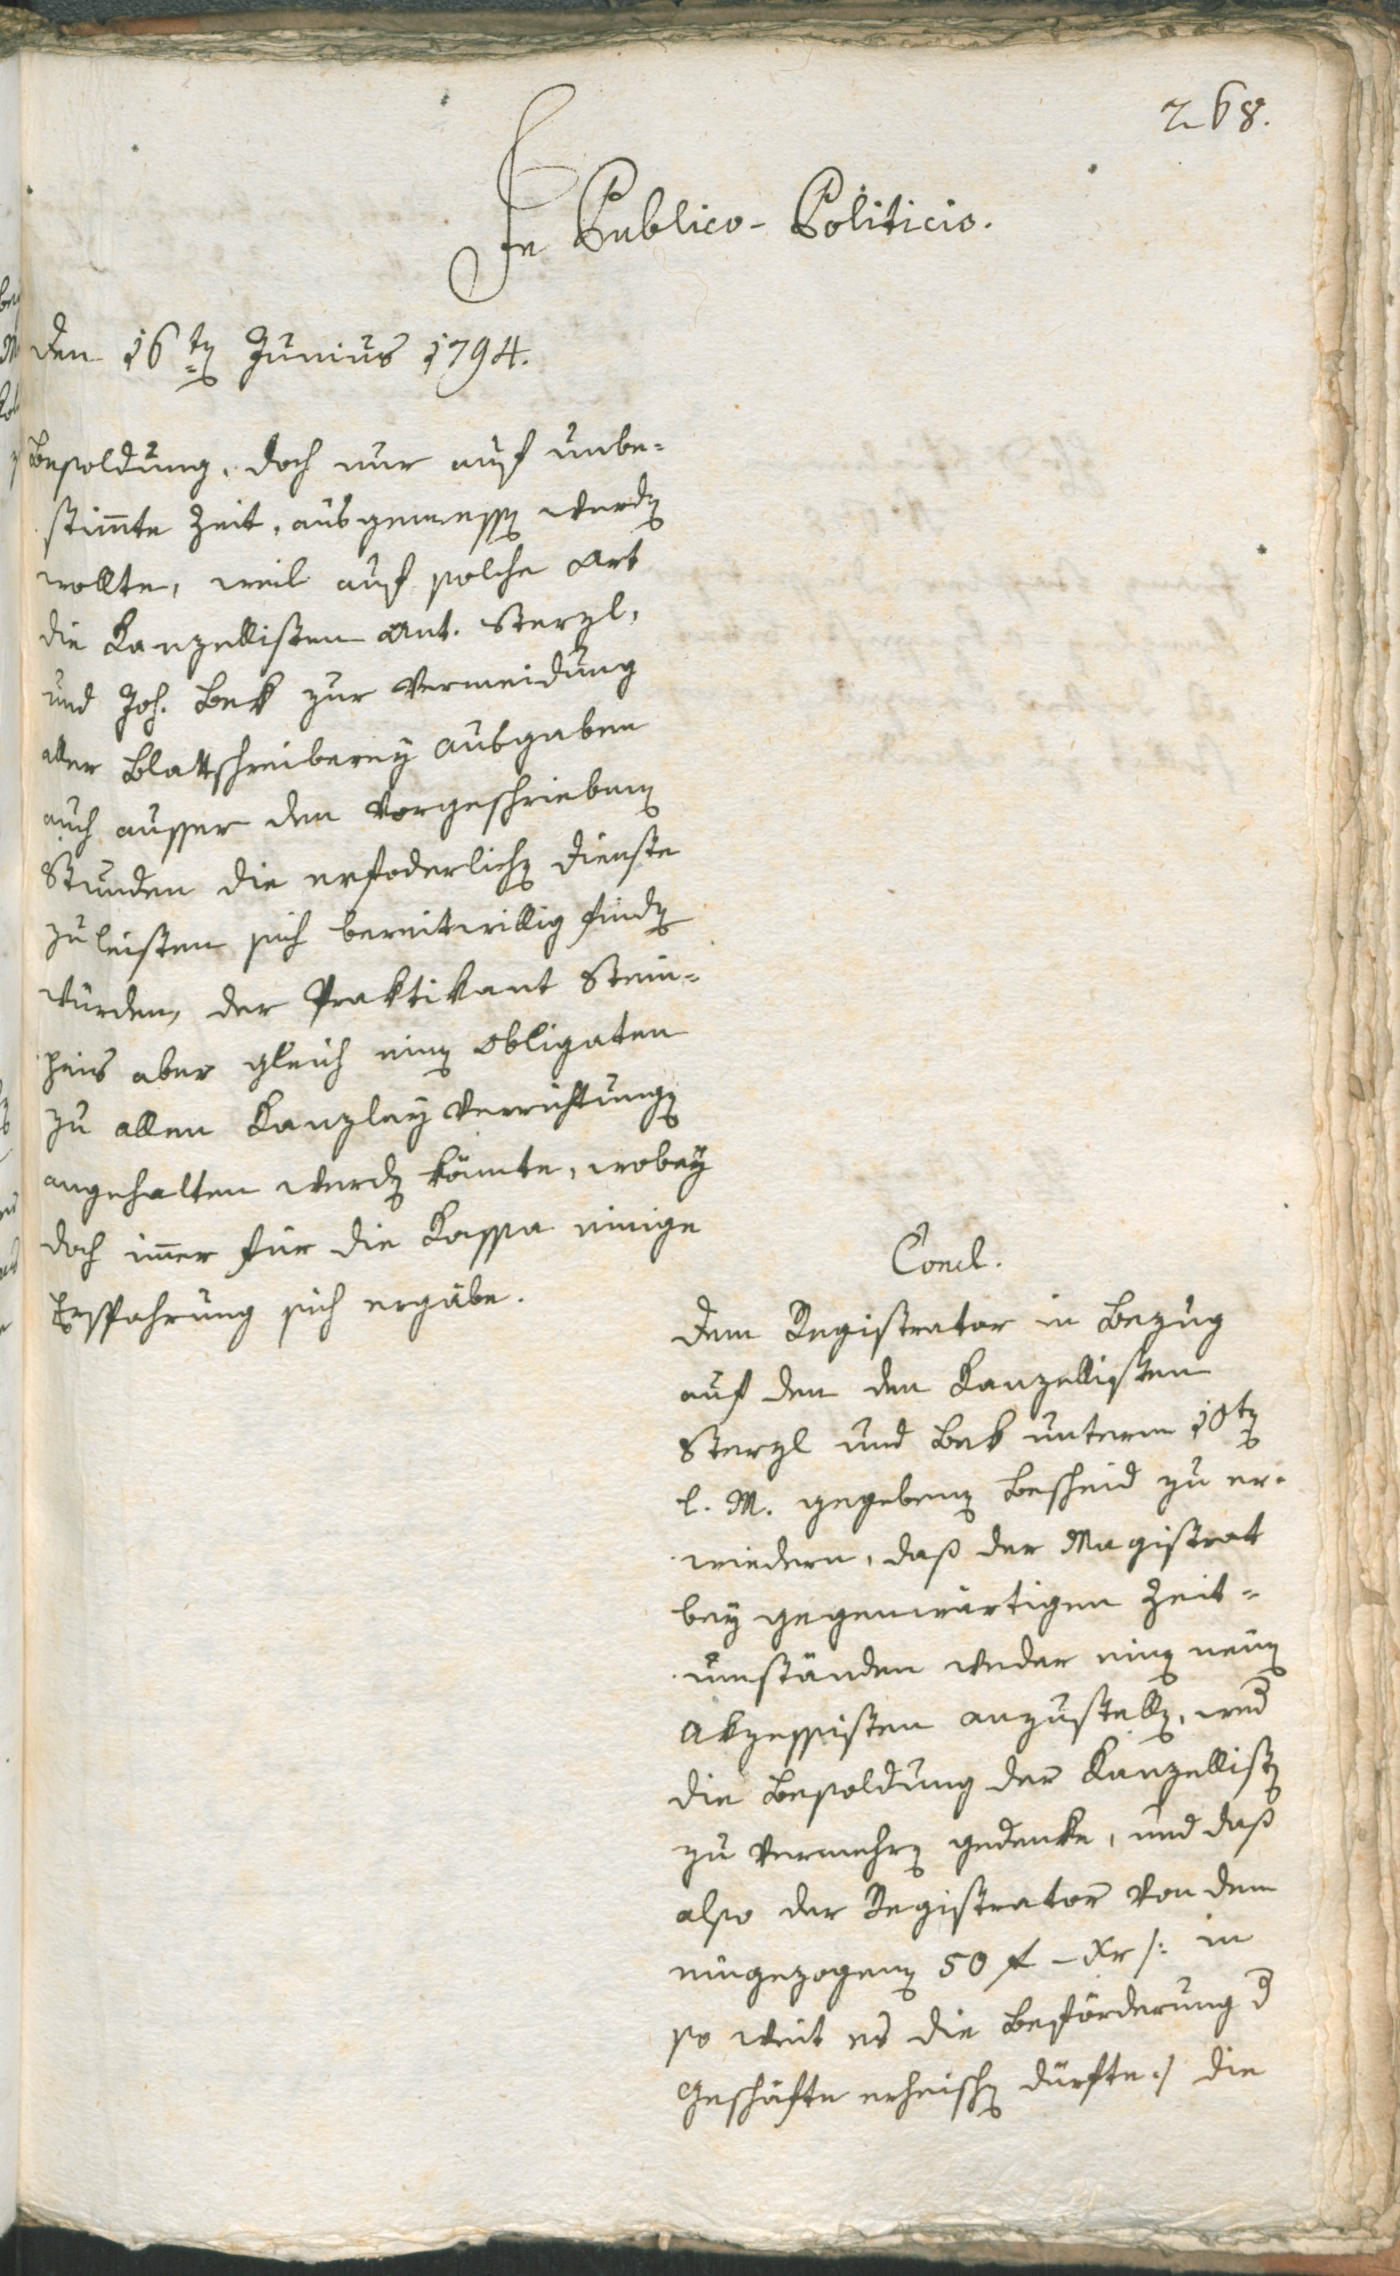 268.
In Publico-Politicis.
den 16ten Junius 1794.
Besoldung, doch nur auf unbe-
stimmte Zeit, ausgemessen werden
wollte, weil auf solche Art
die Kanzellisten Ant. Sterzl,
und Joh. Bek zur Vermeidung
aller Blattschreiberey Ausgaben
auch ausser den vorgeschriebenen
Stunden die erfoderlichen Dienste
zu leisten sich bereitwillig finden
würden, der Praktikant Stein-
haus aber gleich einen Obligaten
zu allen Kanzley Verrichtungen
angehalten werden könnte, wobey
doch immer für die Kassa einige
Erspahrung sich ergäbe.
Concl.
Dem Registrator in Bezug
auf den den Kanzellisten
Sterzl und Bek unterm 10ten
l. M. gegebenen Bescheid zu er-
wiedern, daß der Magistrat
bey gegenwärtigen Zeit-
umständen weder einen neuen
Akzessisten anzustellen, weder
die Besoldung der Kanzellisten
zu vermehren gedenke, und daß
also der Registrator von dem
eingezogenen 50 f - Xr /: in
so weit es die Beförderung der
Geschäfte erheischen dürfte :/ die